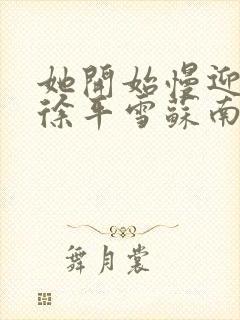 她開始慢迎
徐平雪蘇南
舞月裳